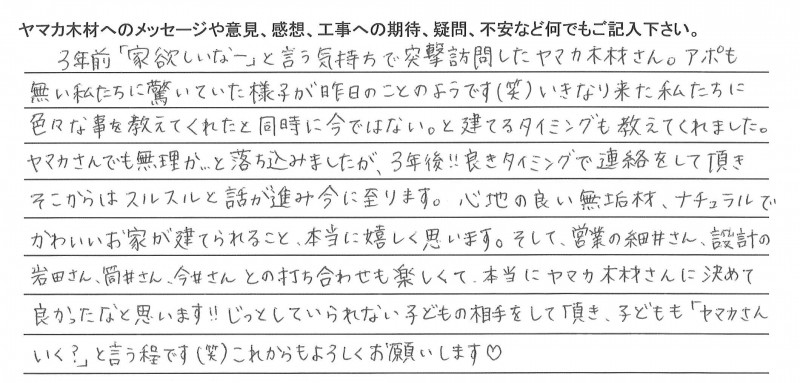 ヤマカ木材へのメッセージや意見、感想、工事への期待、疑問、不安など何でもご記入下さい。
3年前「家欲しいなー」と言う気持ちで突撃訪問したヤマカ木材さん。アポも
無い私たちに驚いていた様子が昨日のことのようです(笑)いきなり来た私たちに
色々な事を教えてくれたと同時に今ではない。と建てるタイミングも教えてくれました。
ヤマカさんでも無理か…と落ち込みましたが、3年後!!良きタイミングで連絡をして頂き
そこからはスルスルと話が進み今に至ります。心地の良い無垢材、ナチュラルで
かわいいお家が建てられること、本当に嬉しく思います。そして、営業の細井さん、設計の
岩田さん、筒井さん、今井さんとの打ち合わせも楽しくて、本当にヤマカ木材さんに決めて
良かったなと思います!!じっとしていられない子どもの相手をして頂き、子どもも「ヤマカさん
いく?」と言う程です(笑)これからもよろしくお願いします♡